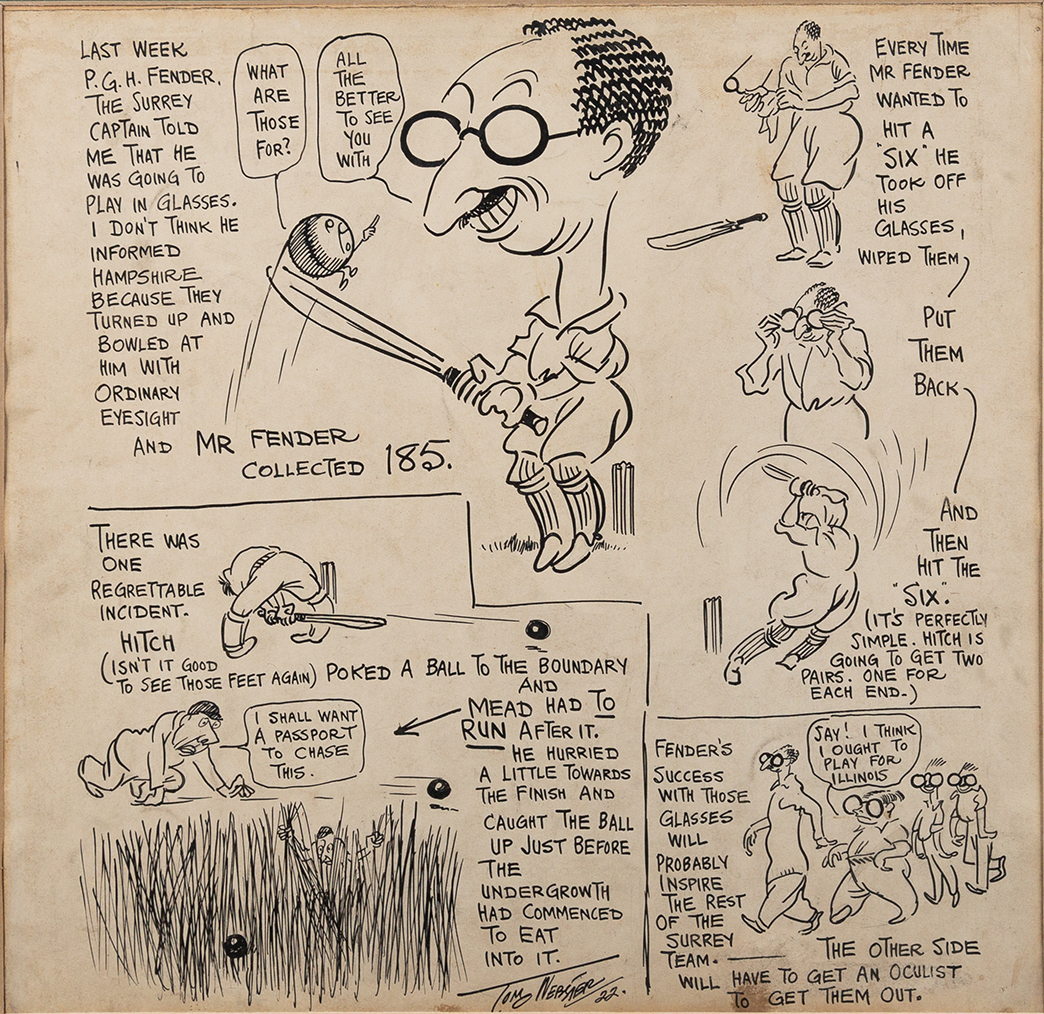 LAST WEEK
P.G.H. FENDER,
THE SURREY
CAPTAIN TOLD
ME THAT HE
WAS GOING TO
PLAY IN GLASSES.
I DON'T THINK HE
INFORMED
HAMPSHIRE
BECAUSE THEY
TURNED UP AND
BOWLED AT
HIM WITH
ORDINARY
EYESIGHT
AND MR FENDER
COLLECTED 185.
WHAT
ARE
THOSE
FOR?
ALL
THE
BETTER
TO SEE
YOU
WITH
EVERY TIME
MR FENDER
WANTED TO
HIT A
"SIX" HE
TOOK OFF
HIS
GLASSES,
WIPED THEM,
PUT
THEM
BACK
AND
THEN
HIT THE
"SIX".
(IT'S PERFECTLY
SIMPLE. HITCH IS
GOING TO GET TWO
PAIRS. ONE FOR
EACH END.)
THERE WAS
ONE
REGRETTABLE
INCIDENT.
HITCH
(ISN'T IT GOOD
TO SEE THOSE FEET AGAIN) POKED A BALL TO THE BOUNDARY
AND
MEAD HAD TO
RUN AFTER IT.
HE HURRIED
A LITTLE TOWARDS
THE FINISH AND
CAUGHT THE BALL
UP JUST BEFORE
THE
UNDERGROWTH
HAD COMMENCED
TO EAT
INTO IT.
I SHALL WANT
A PASSPORT
TO CHASE
THIS.
TOM WEBSTER
22.
FENDER'S
SUCCESS
WITH THOSE
GLASSES
WILL
PROBABLY
INSPIRE
THE REST
OF THE
SURREY
TEAM. — THE OTHER SIDE
WILL HAVE TO GET AN OCULIST
TO GET THEM OUT.
SAY! I THINK
I OUGHT TO
PLAY FOR
ILLINOIS